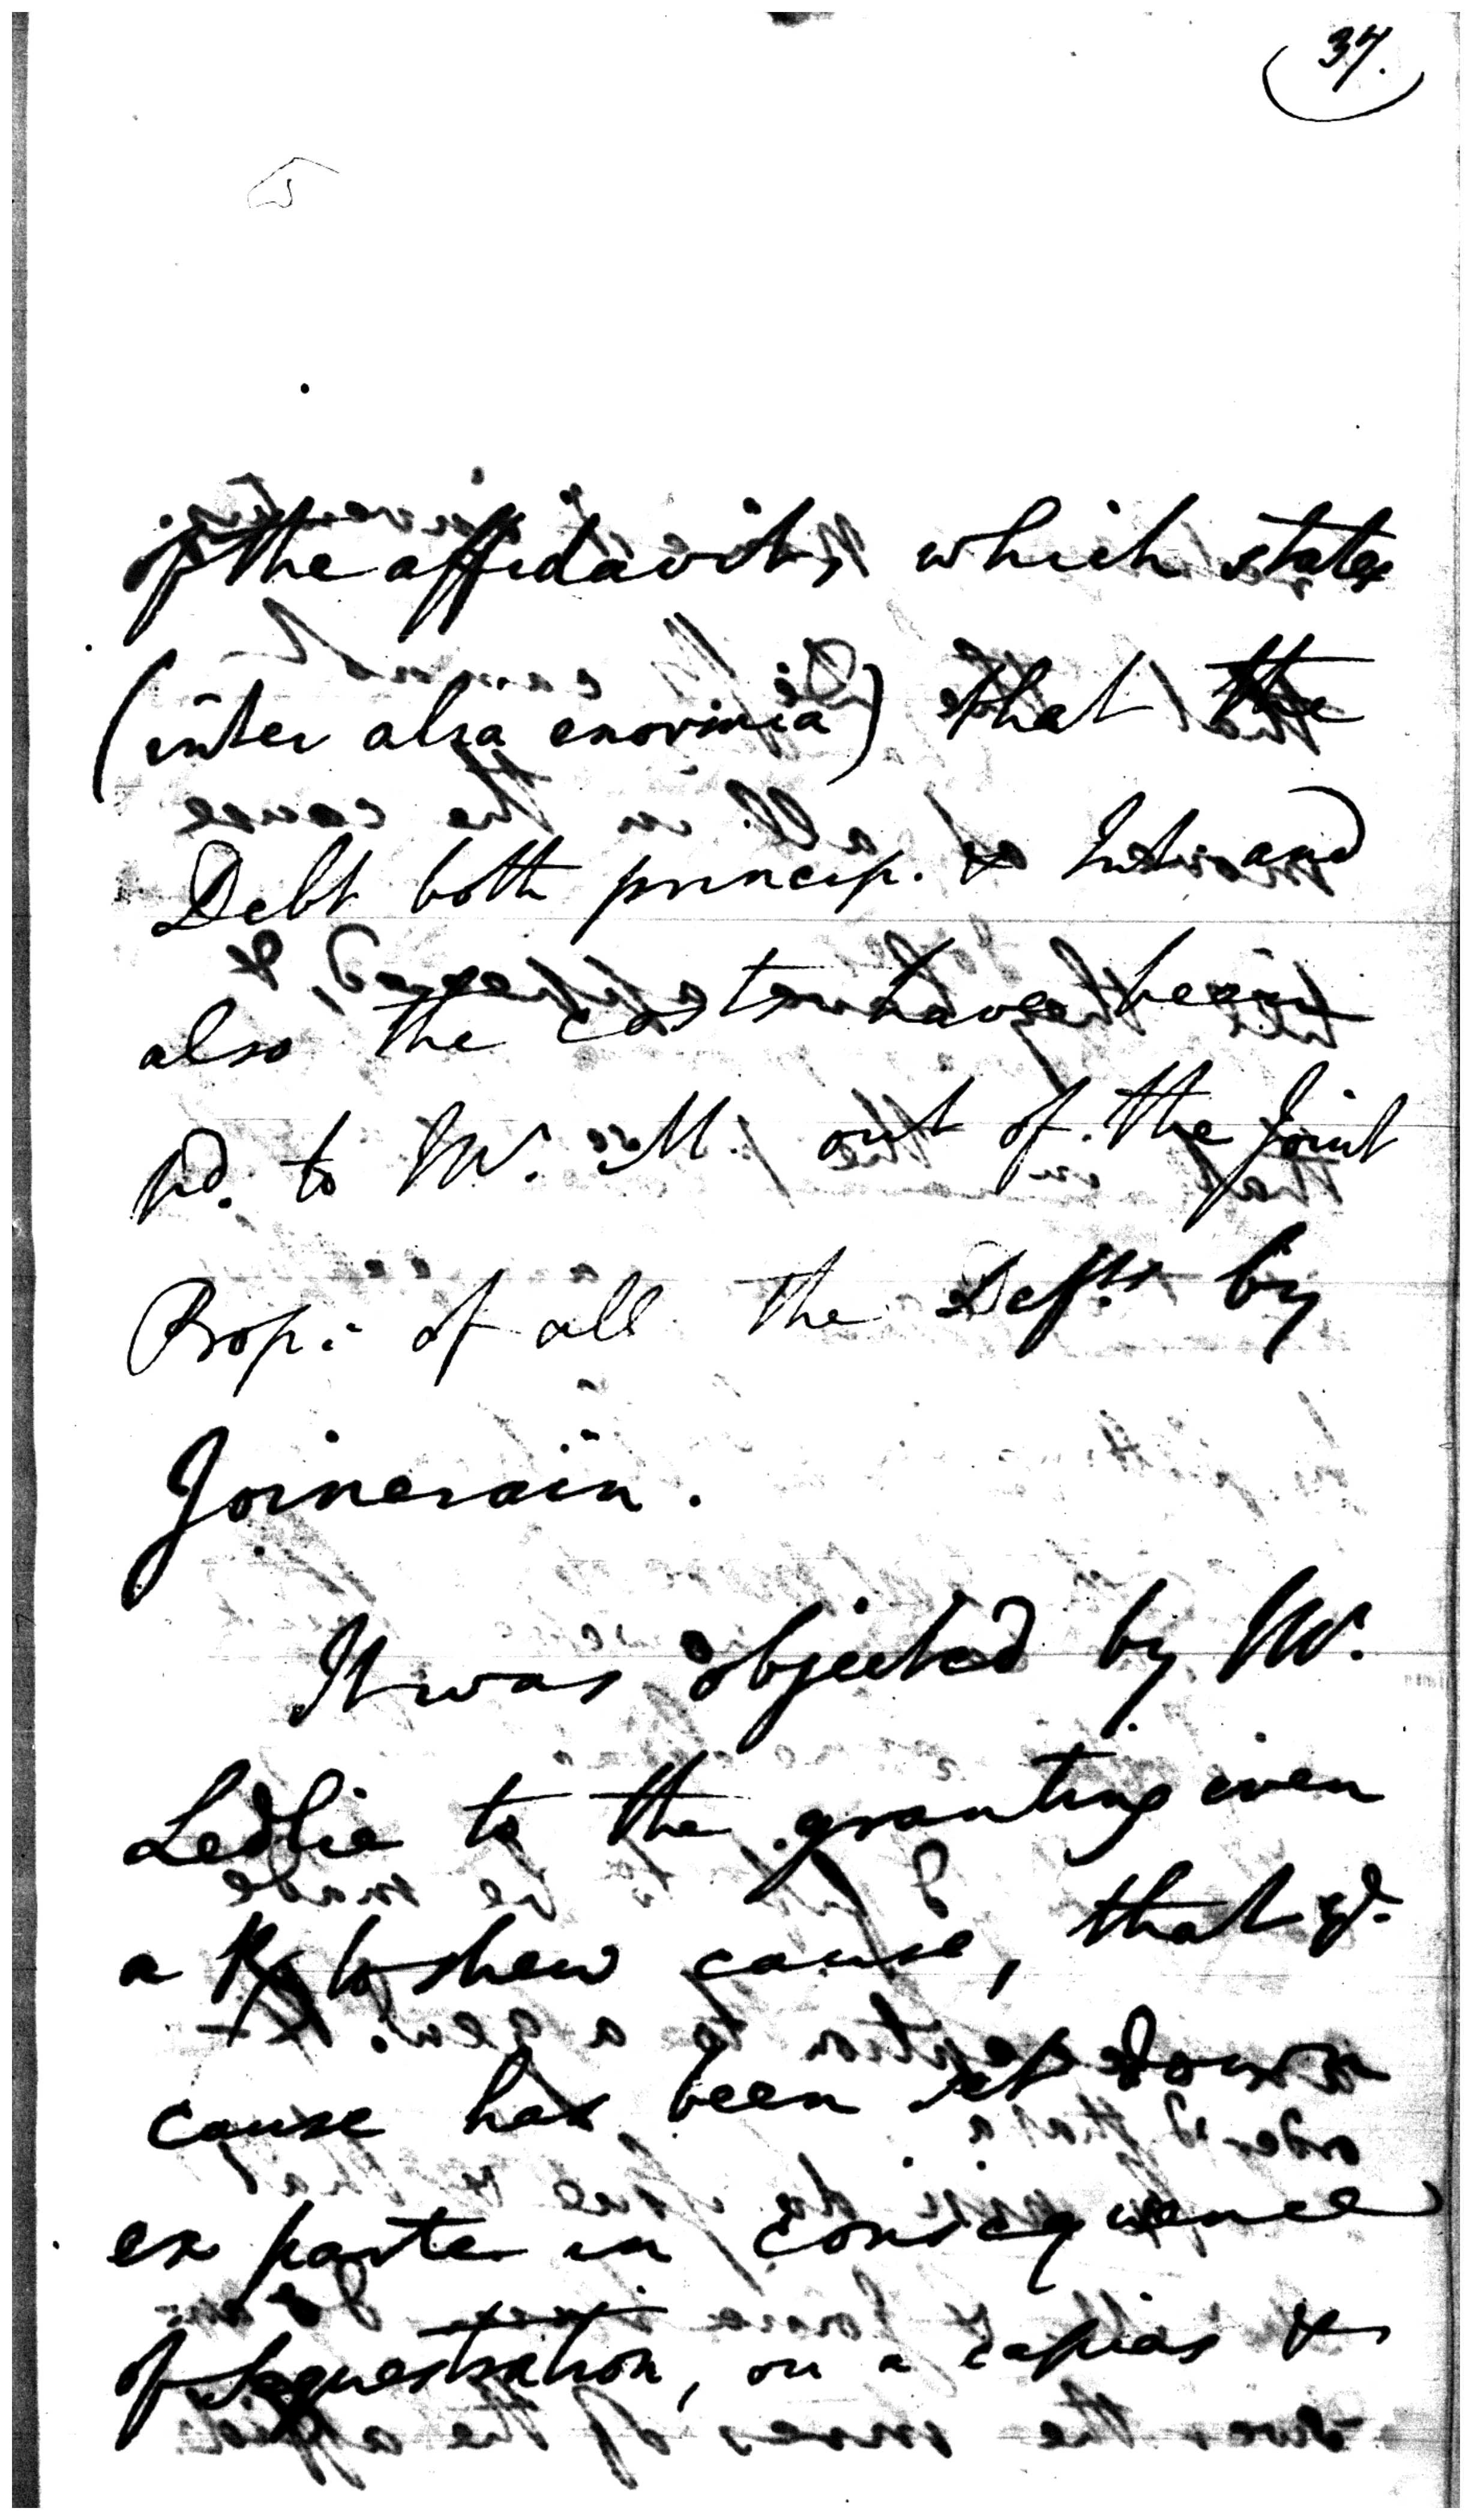 37.
of the affidavits, which states
(inter alia enormia) that the
Debt both princip. & Int. and
also the costs have been
pd. to Mr. M. out of the Joint
Prop. of all the Defts by
Joinerain.
It was objected by Mr.
Ledlie to the granting even
a R. to shew cause, that ye.
cause has been set down
ex parte in consequence
of sequestration, on a capias &